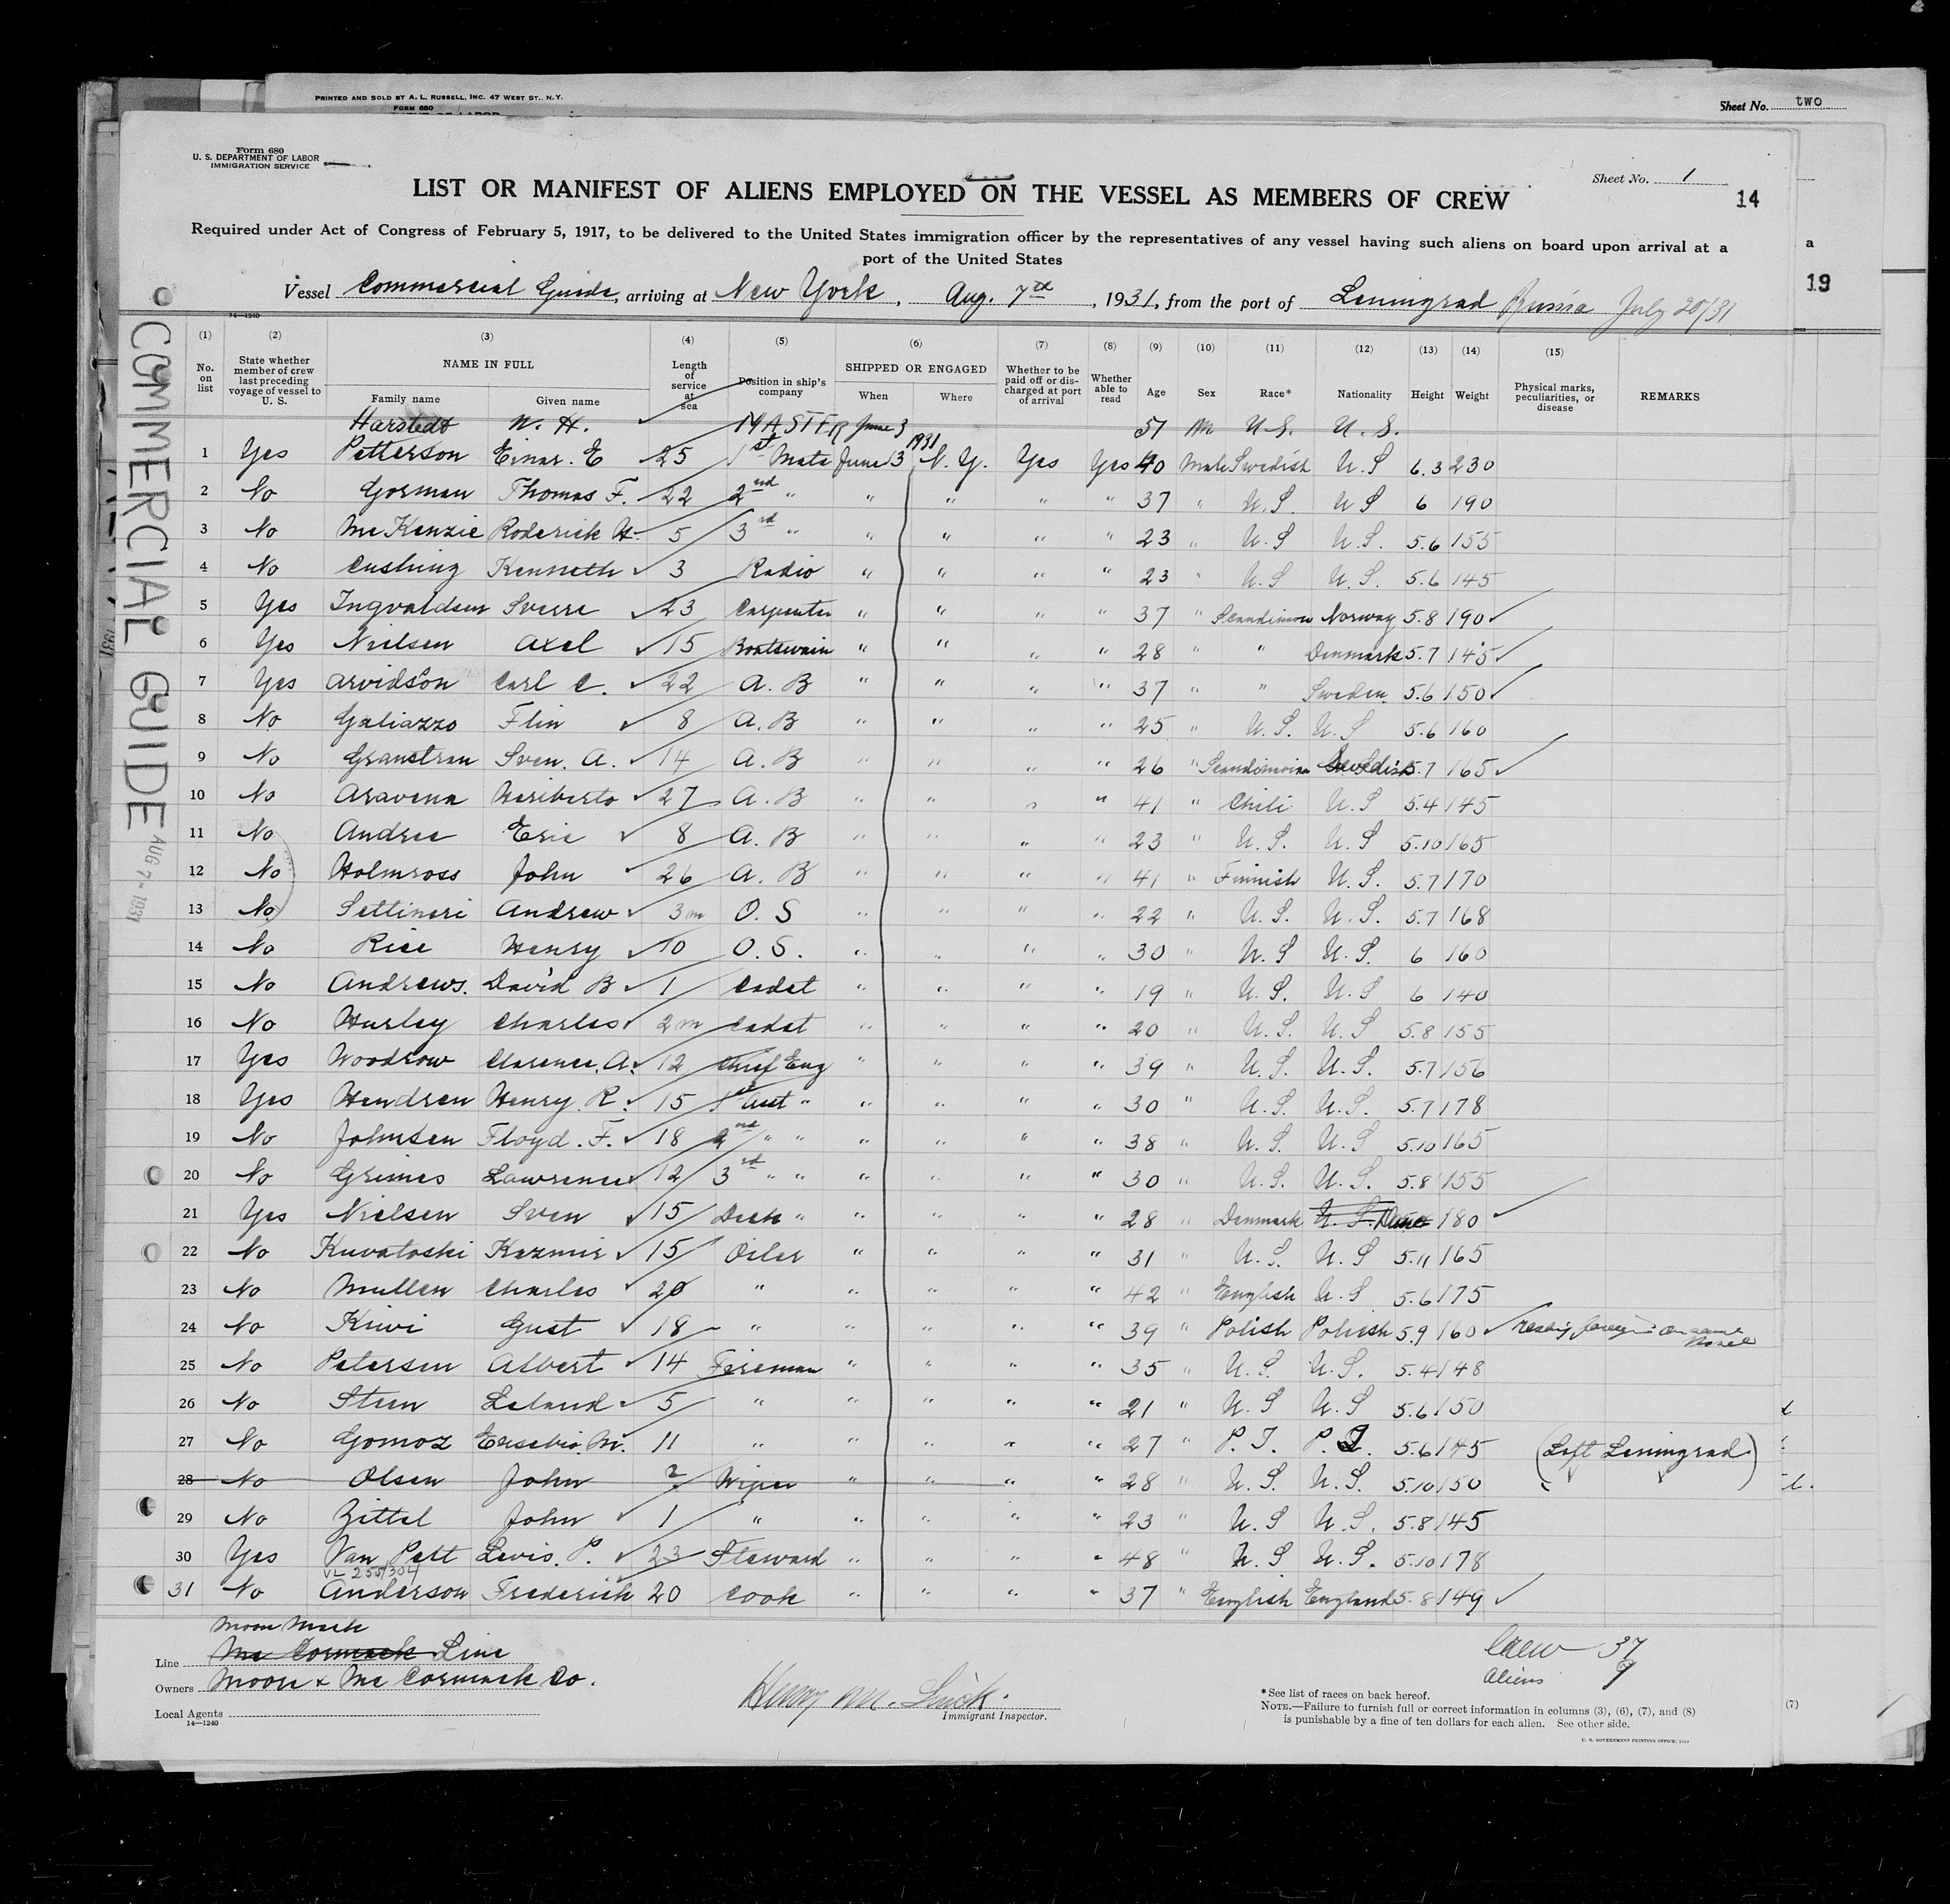 PRINTED AND SOLD BY A. L. RUSSELL, INC. 47 WEST ST., N.Y.
FORM 680
Sheet No. two
Form 680
U. S. DEPARTMENT OF LABOR
IMMIGRATION SERVICE
Sheet No. 1
LIST OR MANIFEST OF ALIENS EMPLOYED ON THE VESSEL AS MEMBERS OF CREW
14
Required under Act of Congress of February 5, 1917, to be delivered to the United States immigration officer by the representatives of any vessel having such aliens on board upon arrival at a
port of the United States
a
19
Vessel Commercial Guide, arriving at New York, Aug. 7th, 1931, from the port of Leningrad Russia July 20/31
COMMERCIAL GUIDE AUG 7 - 1931
14—1240
(1) (2) (3) (4) (5) (6) (7) (8) (9) (10) (11) (12) (13) (14) (15)
No. on list
State whether member of crew last preceding voyage of vessel to U. S.
NAME IN FULL
Family name Given name
Length of service at sea
Position in ship's company
SHIPPED OR ENGAGED
When Where
Whether to be paid off or discharged at port of arrival
Whether able to read
Age Sex Race* Nationality Height Weight
Physical marks, peculiarities, or disease
REMARKS
Harstedt W. H. MASTER June 3 51 M U.S. U.S.
1 Yes Petterson Einar. E 25 1st Mate June 3 1931 N. Y. Yes Yes 40 Male Swedish U.S 6.3 230
2 No Gorman Thomas F. 22 2nd " " " " " 37 " U.S. U S 6 190
3 No McKenzie Roderick H. 5 3rd " " " " " 23 " U.S U.S. 5.6 155
4 No Cushing Kenneth 3 Radio " " " " 23 " U.S U.S. 5.6 145
5 Yes Ingvaldsen Sverre 23 Carpenter " " " " 37 " Norway 5.8 190
6 Yes Nielsen Axel 15 Boatswain " " " " 28 " " Denmark 5.7 145
7 Yes Arvidson Carl C. 22 A. B " " " " 37 " " Sweden 5.6 150
8 No Galiazzo Flin 8 A. B " " " " 25 " U.S. U.S 5.6 160
9 No Granstran Sven. A. 14 A. B " " " " 26 " Swedish 5.7 165
10 No Aravena Heriberto 27 A. B " " " " 41 " Chili U.S 5.4 145
11 No Andree Eric 8 A. B " " " " 23 " U.S. U.S 5.10 165
12 No Holmross John 26 A. B " " " " 41 " Finnish U.S. 5.7 170
13 No Settineri Andrew 3m O. S " " " " 22 " U.S. U.S. 5.7 168
14 No Rice Henry 10 O. S. " " " " 30 " U.S U.S. 6 160
15 No Andrews. David B 1 Cadet " " " " 19 " U.S. U.S 6 140
16 No Hurley Charles 2m Cadet " " " " 20 " U.S. U.S 5.8 155
17 Yes Woodrow Clarence. A. 12 Chief Eng " " " " 39 " U.S. U.S. 5.7 156
18 Yes Hendren Henry. R. 15 1st Asst " " " " " 30 " U.S. U.S. 5.7 178
19 No Johnsen Floyd. F. 18 2nd " " " " " " 38 " U.S. U.S 5.10 165
20 No Grimes Lawrence 12 3rd " " " " " " 30 " U.S. U.S. 5.8 155
21 Yes Nielsen Sven 15 Deck " " " " " 28 " Denmark U.S. Dane 180
22 No Kuvatoski Kazmir 15 Oiler " " " " 31 " U.S. U.S 5.11 165
23 No Mullen Charles 20 " " " " " 42 " English U.S 5.6 175
24 No Kiwi Gust 18 " " " " " 39 " Polish Polish 5.9 160
25 No Petersen Albert 14 Fireman " " " " 35 " U.S. U.S. 5.4 148
26 No Stein Leland 5 " " " " " 21 " U.S U.S 5.6 150
27 No Gomoz Eusebio. M. 11 " " " " " 27 " P. I. P. I. 5.6 145
(Left Leningrad)
28 No Olsen John 2 Wiper " " " " 28 " U.S. U.S. 5.10 150
29 No Zittel John 1 " " " " " 23 " U.S U.S. 5.8 145
30 Yes Van Pett Lewis. P. 23 Steward " " " " 48 " U.S U.S. 5.10 178
VL 255/304
31 No Anderson Frederick 20 Cook " " " " 37 " English England 5.8 149
Moore Mack
Line Mc Cormack Line
Owners Moore & Mc Cormack Co.
Local Agents
14—1240
Immigrant Inspector.
Crew 37
Aliens 9
*See list of races on back hereof.
NOTE.—Failure to furnish full or correct information in columns (3), (6), (7), and (8)
is punishable by a fine of ten dollars for each alien. See other side.
(7)
U. S. GOVERNMENT PRINTING OFFICE: